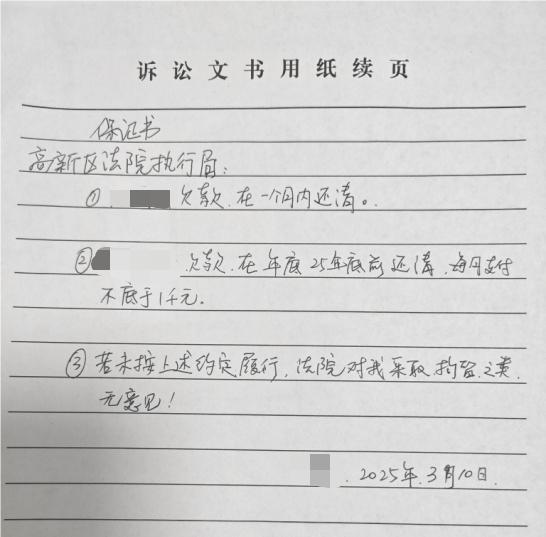 诉讼文书用纸续页
保证书
高新区法院执行局：
① 欠款.在一个月内还清。
② 欠款.在年底25年底前还清，每月支付
不底于1千元.
③若未按上述约定履行，法院对我采取拘留之类，
无意见！
2025年.3月10日.